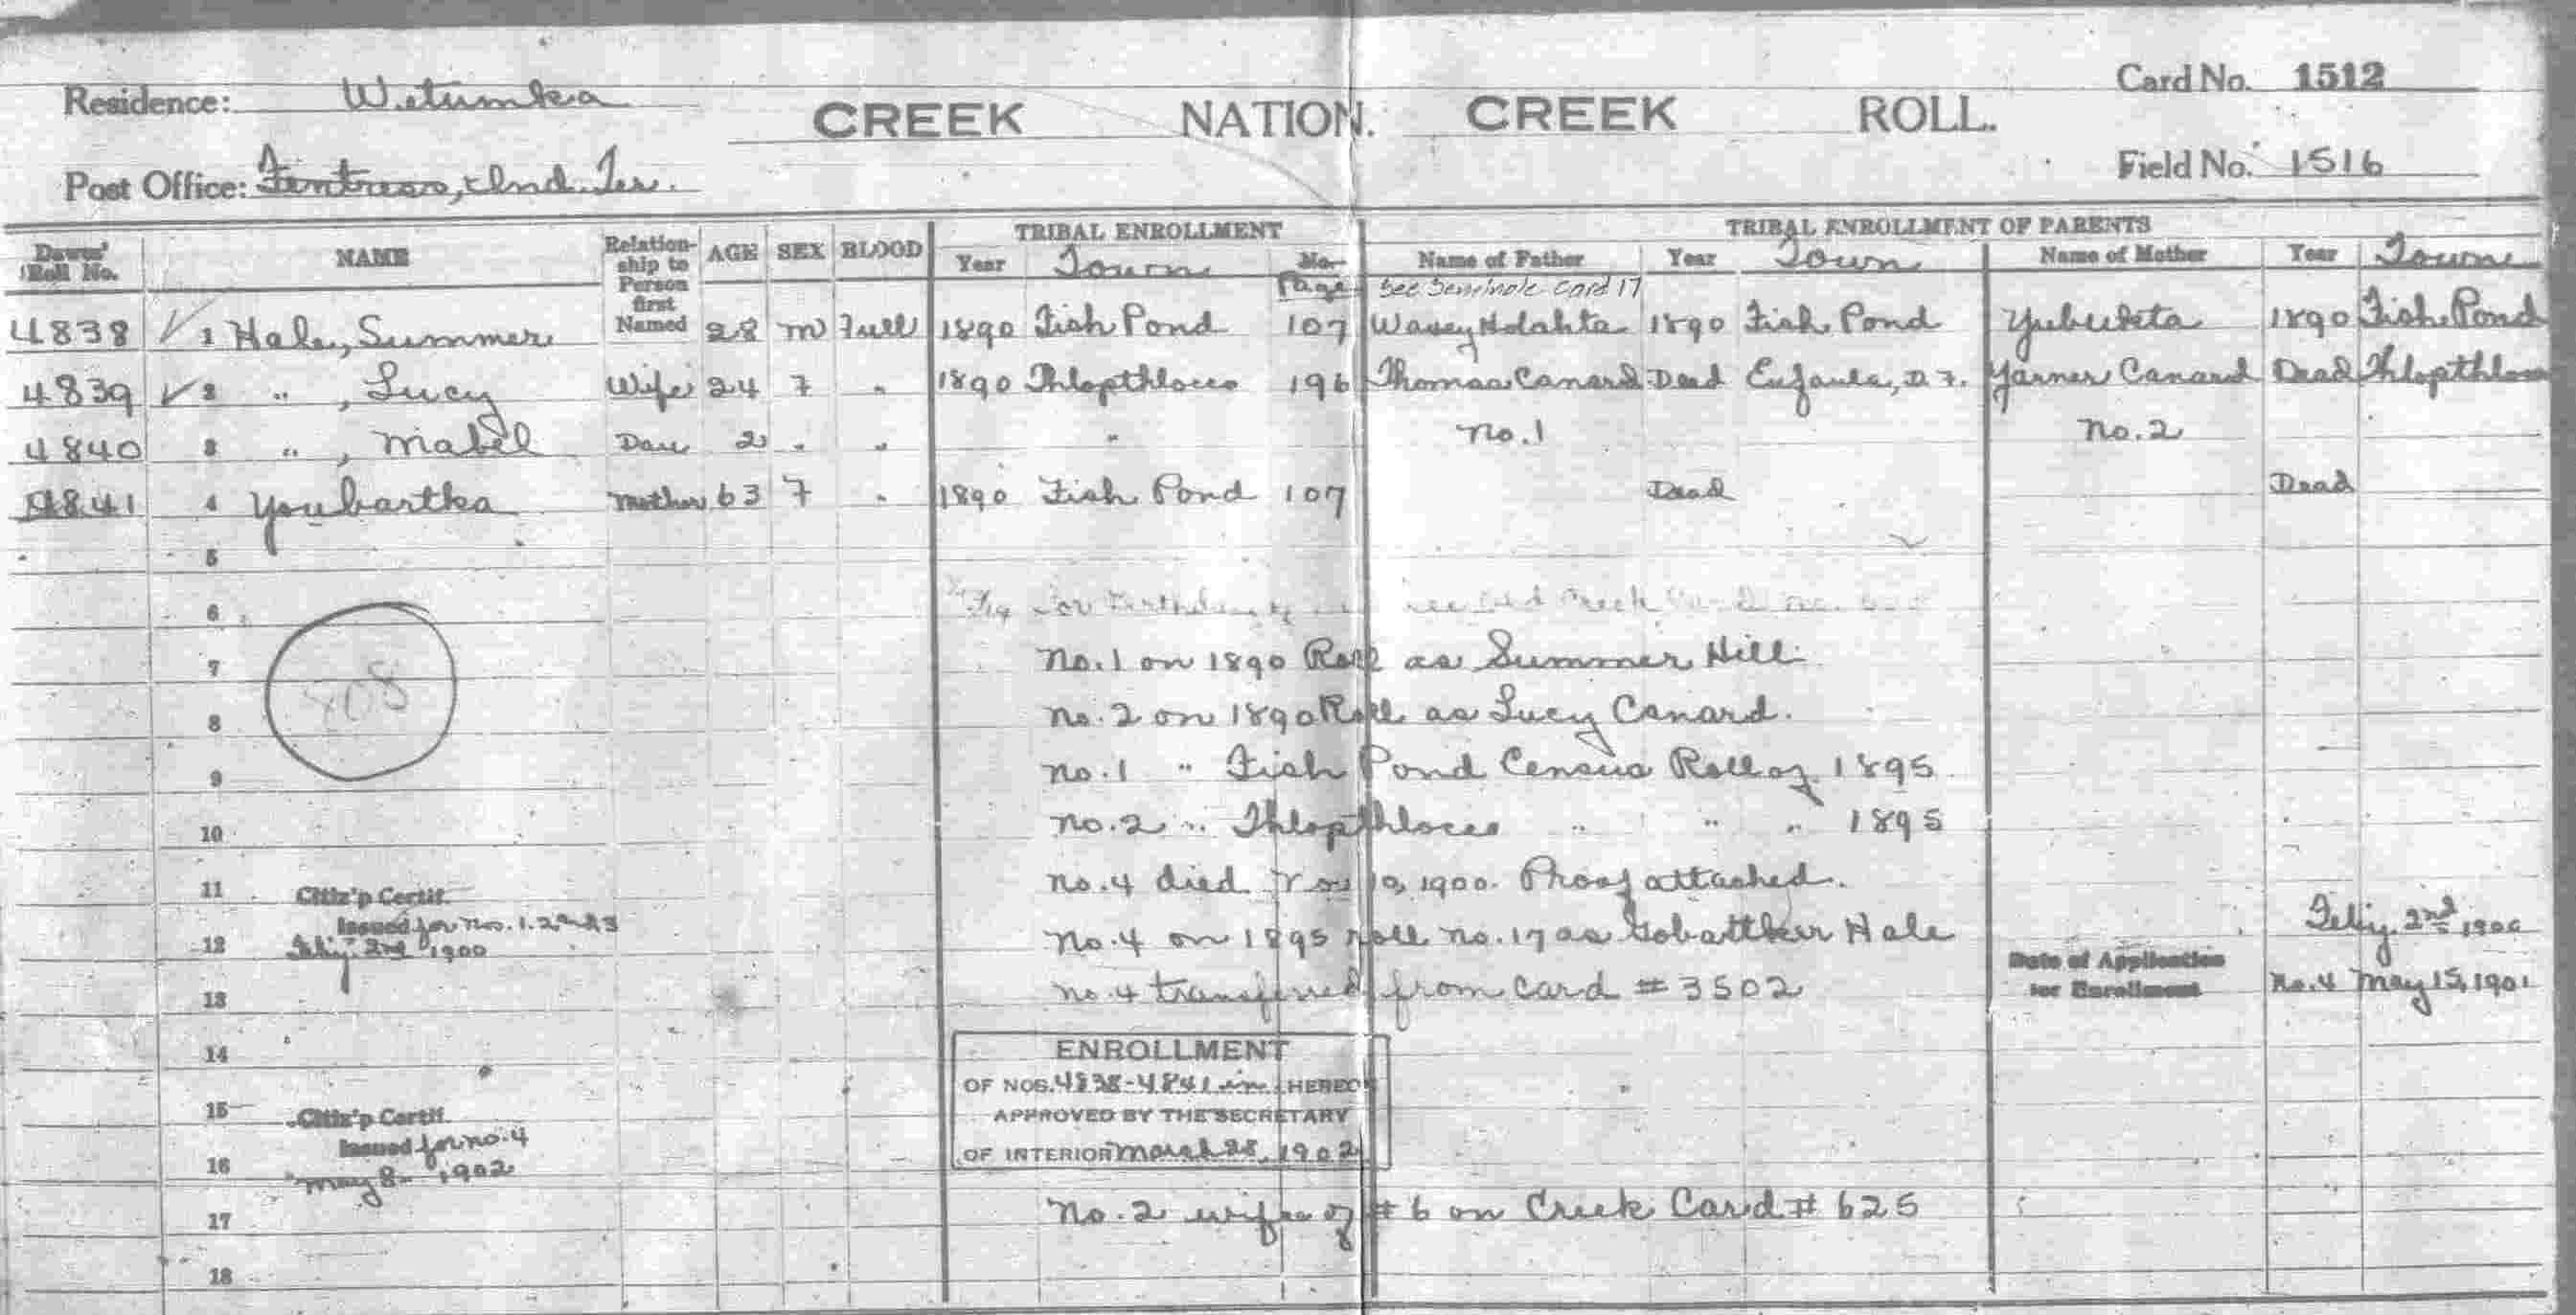 Residence: Wetumka
CREEK NATION. CREEK ROLL.
Card No. 1512
Post Office: Fentress, Ind. Ter.
Field No. 1516
TRIBAL ENROLLMENT
TRIBAL ENROLLMENT OF PARENTS
Dawes' Roll No. NAME Relationship to Person first Named AGE SEX BLOOD Year Town No. Page Name of Father Year Town Name of Mother Year Town
See Seminole card 17
4838 1 Hale, Summer 28 M Full 1890 Fish Pond 107 1890 Fish Pond Yubuketa 1890 Fish Pond
4839 2 " , Lucy Wife 24 F " 1890 Thlopthlocco 196 Thomas Canard Dead Eufaula, D.F. Yarner Canard Dead Thlopthlocco
4840 3 " , Mabel Dau 2 " " " No. 1 No. 2
4841 4 Youbartka Mother 63 F " 1890 Fish Pond 107 Dead Dead
5
6
7 No. 1 on 1890 Roll as Summer Hill
808
8 No. 2 on 1890 Roll as Lucy Canard.
9 No. 1 " Fish Pond Census Roll of 1895
10 No. 2 " Thlopthlocco " " " 1895
11 No. 4 died Nov 10, 1900. Proof attached.
Citiz'p Certif.
Issued for Nos. 1. 2 and 3
Feby. 2nd 1900
12 No. 4 on 1895 roll No. 17 as Hale
Feby. 2nd 1900
Date of Application for Enrollment
No. 4 May 15, 1901
13 No. 4 transferred from card # 3502
14
ENROLLMENT
OF NOS. 4838-4841 in HEREON
APPROVED BY THE SECRETARY
OF INTERIOR March 28, 1902
15 Citiz'p Certif.
Issued for No. 4
16 May 8 1902
17 No. 2 wife of # 6 on Creek Card # 625
18